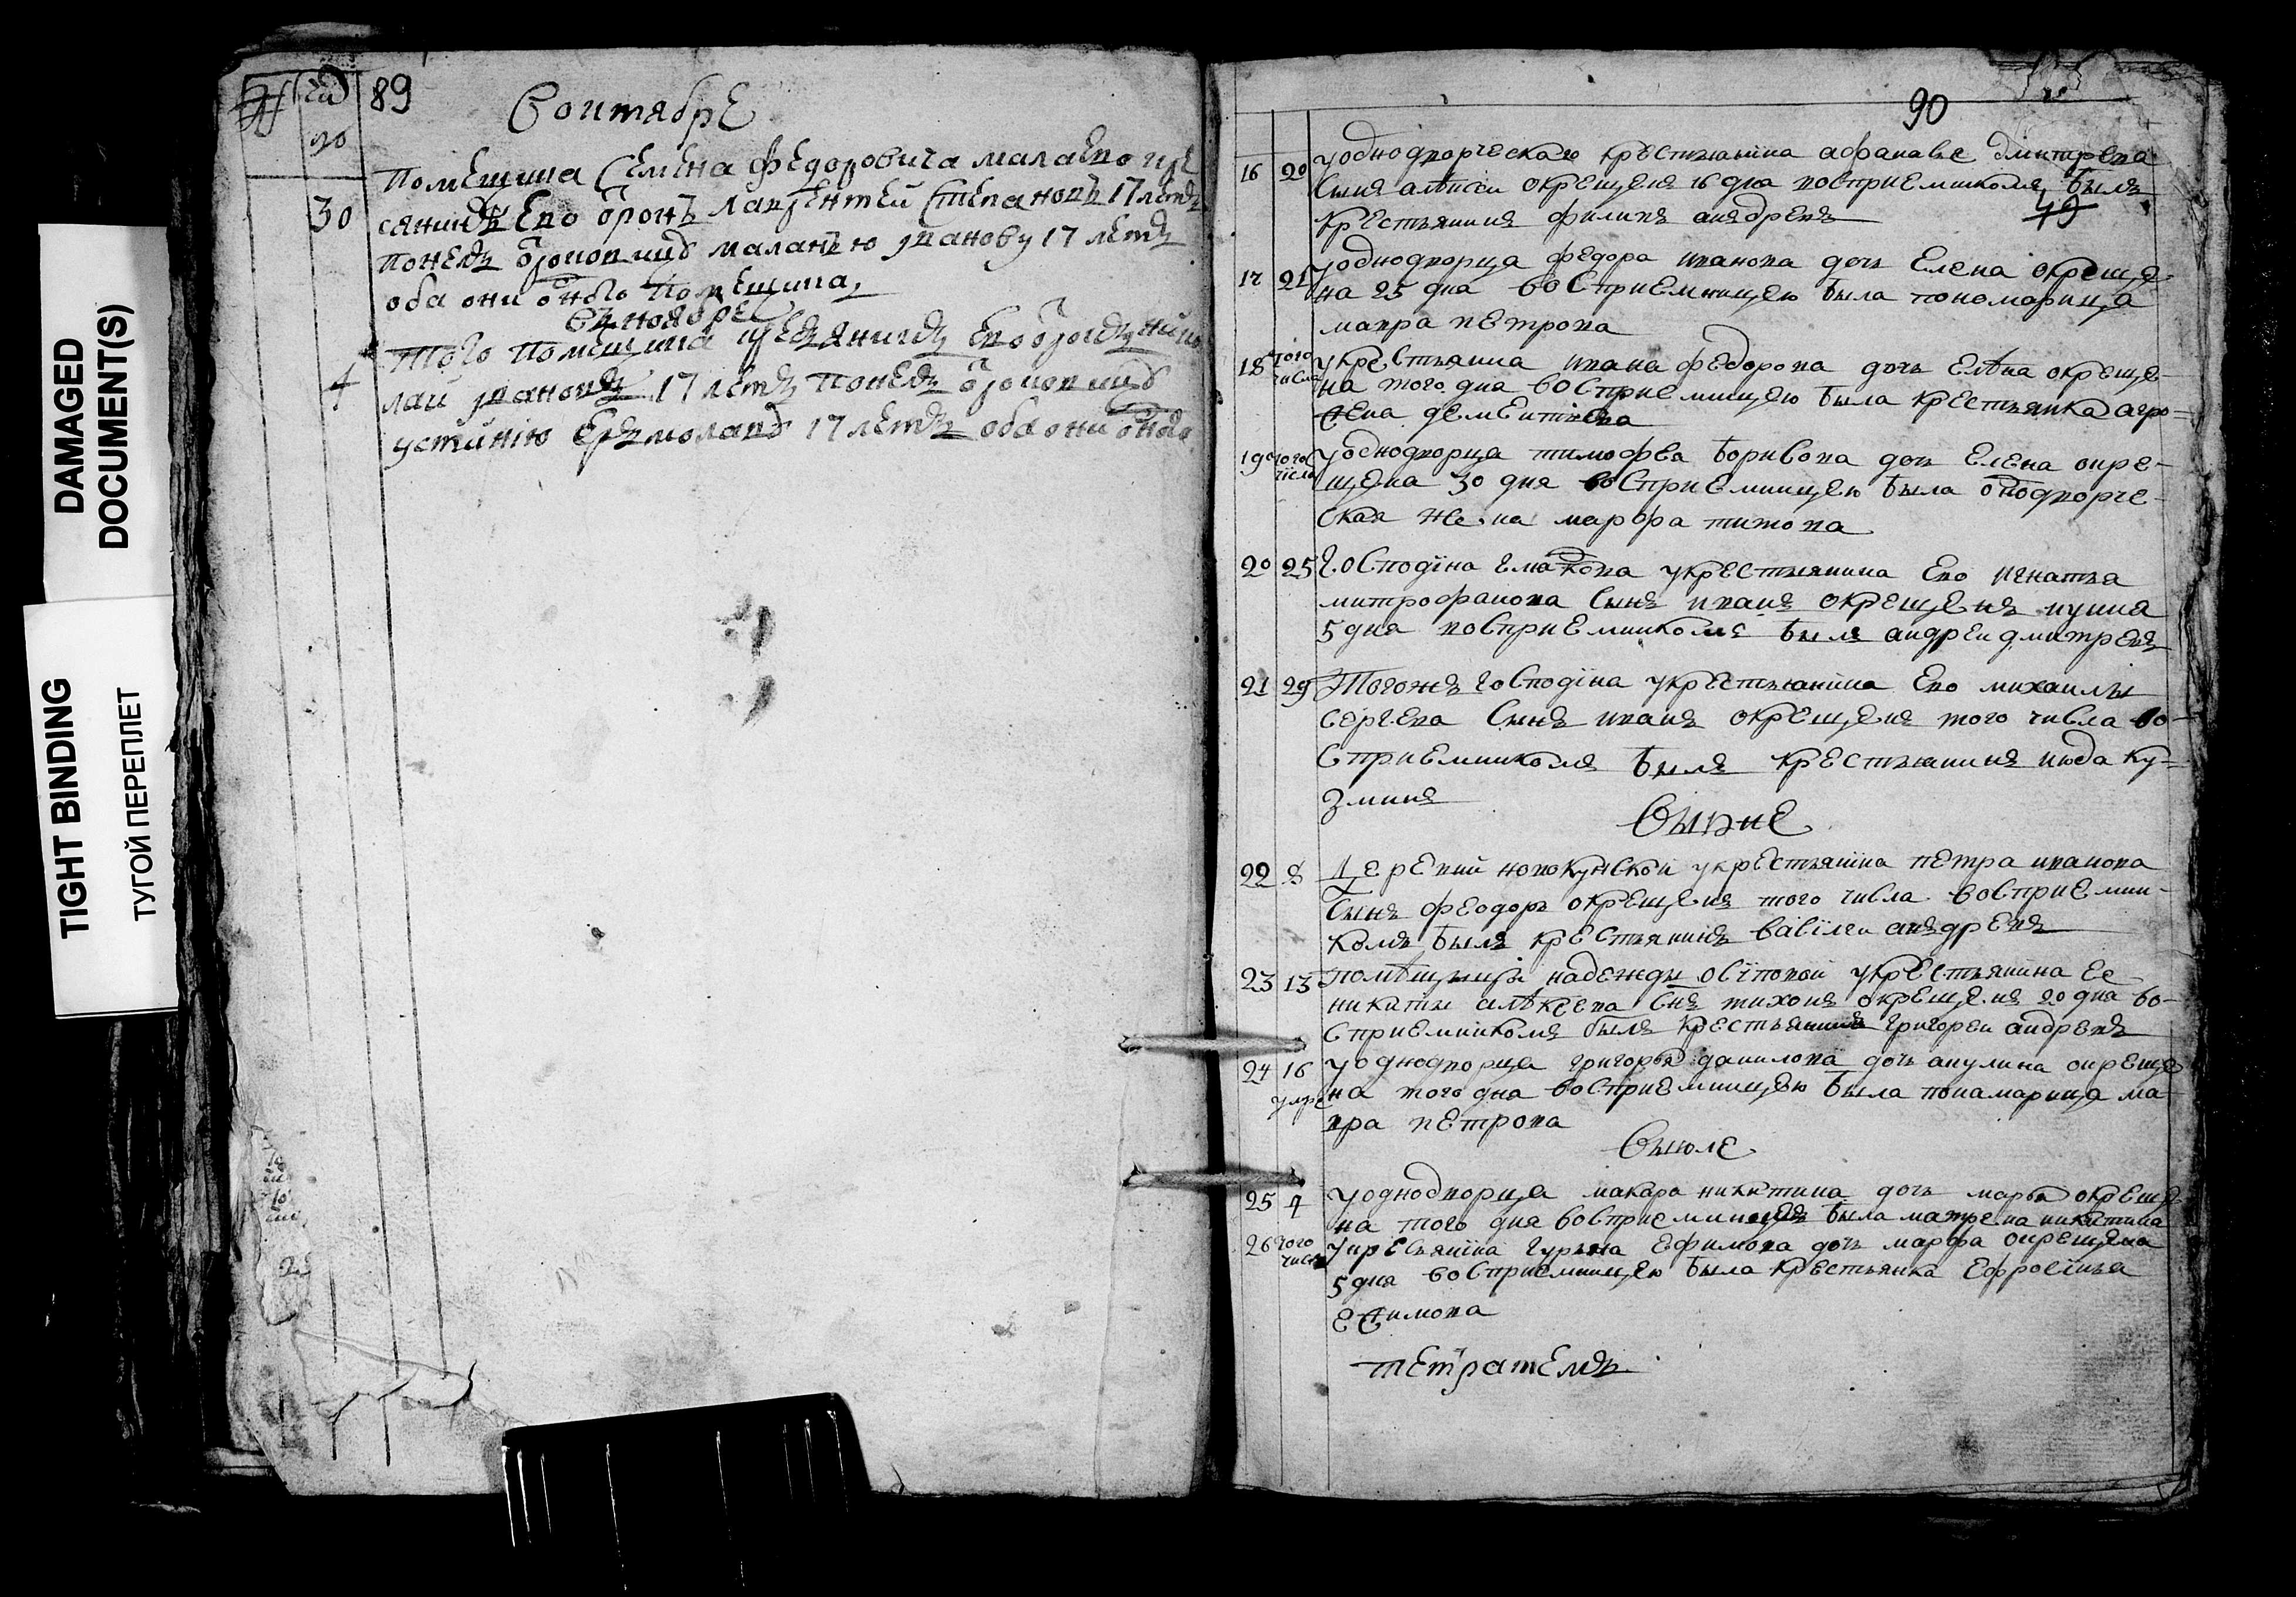 DAMAGED
DOCUMENT(S)
TIGHT BINDING
ТУГОЙ ПЕРЕПЛЕТ
89
30
помещика Семена Федоровича
Ево отрокъ Лаврентей Степановъ 17 летъ
понелъ маланью 17 летъ
оба они оного помещика
въ ноябре
4
того помещика
17 летъ понелъ
устинию 17 летъ оба они оного
90
16 20 у однодворческаго крестьянина афанасе дмитрева
окрещенъ 16 дня восприемникомъ былъ
крестьянинъ филипъ андревъ
17 21 у однодворца федора иванова дочь Елена окреще-
на 25 дня восприемницею была пономарица
мавра петрова
18 того числа у крестьянина ивана федорова дочь Елѣна окреще-
на того дня восприемницею была крестьянка агро-
фена дементьева
19 того числа у однодворца тимофеа борисова дочь Елена окре-
щена 30 дня восприемницею была однодворче-
ская жена марфа титова
20 25 Господина у крестьянина Ево игнатья
митрофанова сынъ иванъ окрещенъ иуния
5 дня восприемникомъ былъ андреи дмитревъ
21 29 Тогожъ господина у крестьянина Ево михаилы
сергева сынъ иванъ окрещенъ того числа во-
сприемникомъ былъ крестьянинъ июда ку-
зминъ
22 8 Деревни новокунской у крестьянина петра иванова
сынъ феодоръ окрещенъ того числа восприемни-
комъ былъ крестьянинъ василеи андревъ
23 13 помѣщицы надежды осиповой у крестьянина Ее
никиты алѣксева снъ тихонъ окрещенъ 20 дня во-
сприемникомъ былъ крестьянинъ григореи андревъ
24 16 у однодворца григорья данилова дочь акулина окреще
на того дня восприемницею была понамарица ма-
вра петрова
въ июле
25 4 у однодворца макара никитина дочь марфа окреще
на того дня восприемницею была матрена никитина
26 того числа у крестьянина гурьяна Ефимова дочь марфа окрещена
5 дня восприемницею была крестьянка Ефросинья
Ефимова